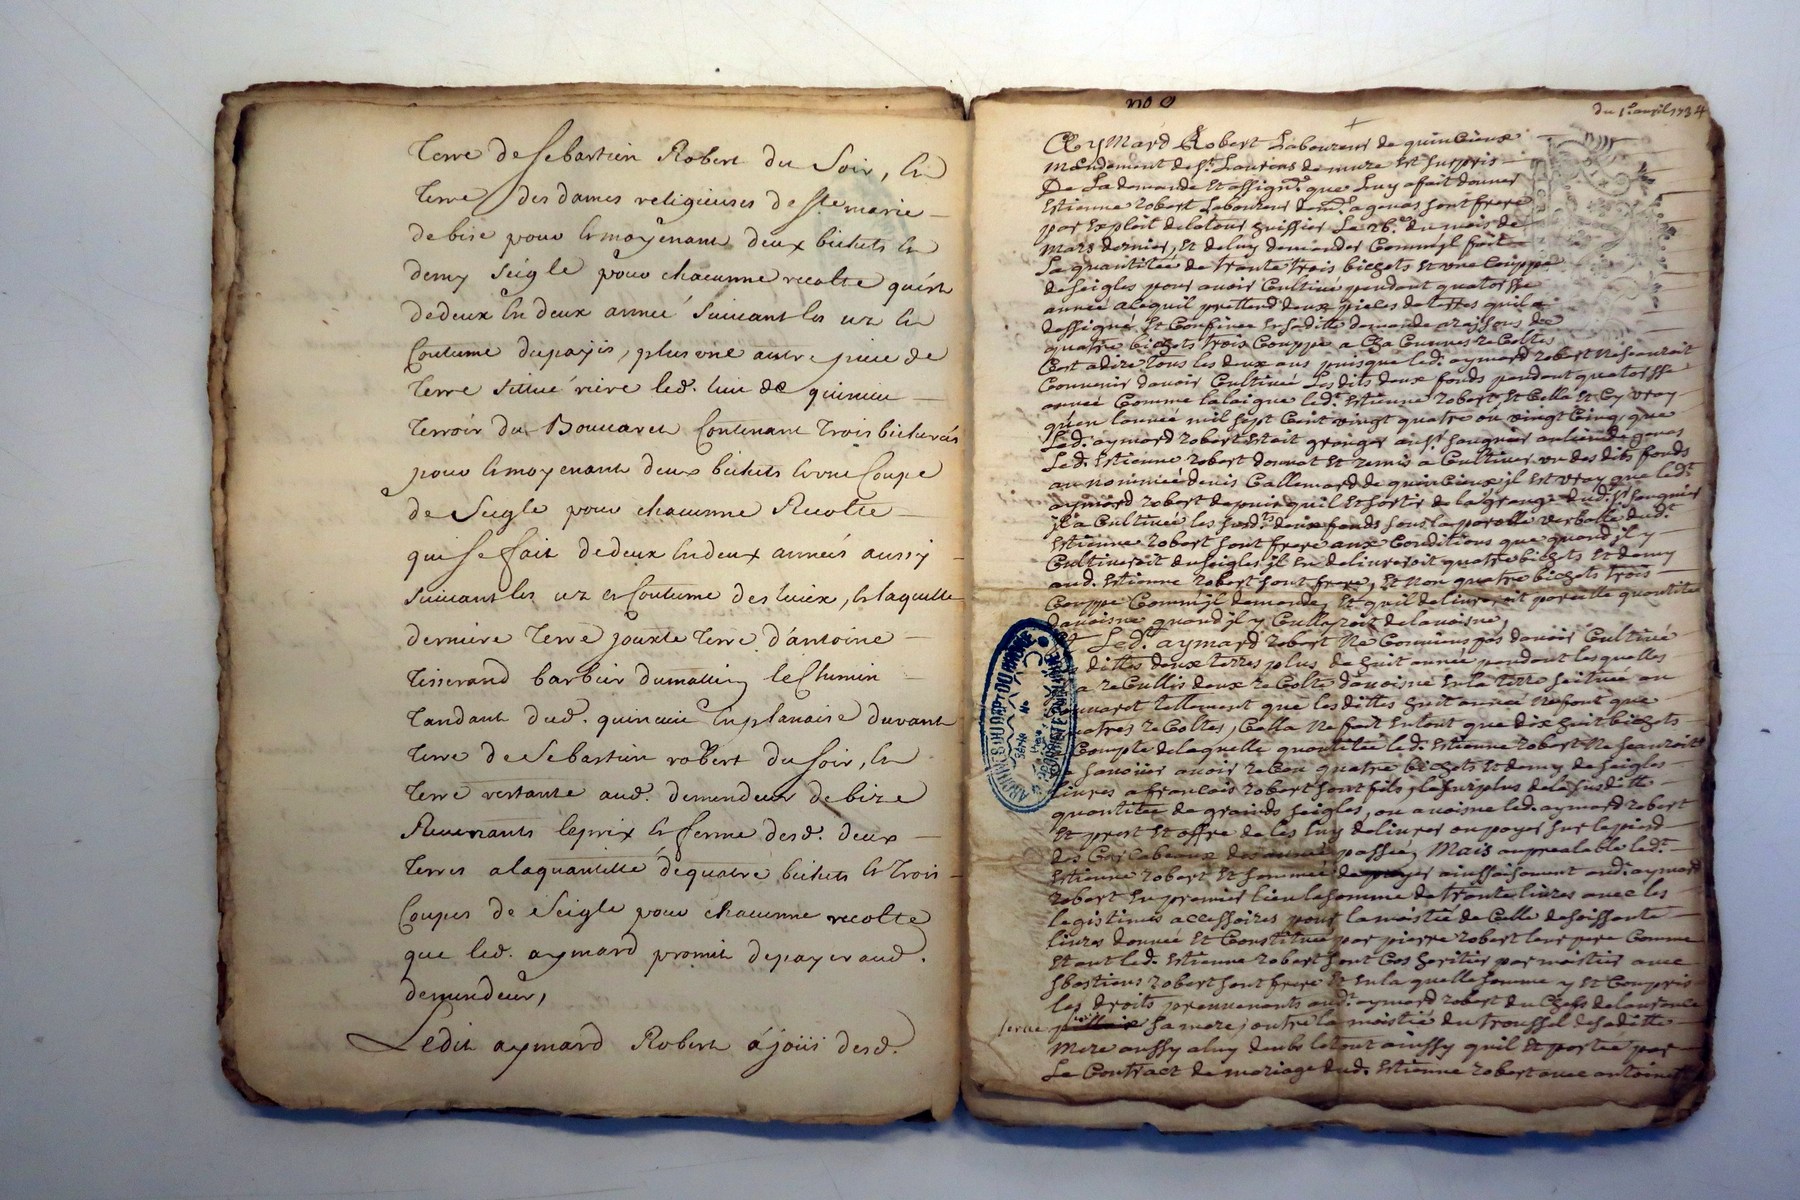 Terre de Sebastien Robert du Soir, En
Terre des dames religieuses de Ste marie
de bise pour Et moyenant deux bichets Et
demy Seigle pour chacunne recolte qu'est
de deux En deux anneé Suivant les uz Et
Coutume du payis, plus une autre piece de
Terre Sittué riere led. lieu de quincieu
Terroir du Bouvaret Contenant Trois bicherées
pour Et moyenant deux bichets Et une Coupe
de Seigle pour chacunne Recolte
qui Se fait de deux En deux anneés aussy
Suivant les uz et Coutume des lieux, Et laquelle
derniere Terre jouxte Terre d'antoine
Tisserand barbier du matin, le Chemin
Tandant dud. quincieu En planaise du vant
Terre de Sebastien robert du Soir, En
Terre restante aud. demendeur de bize
Revenants le prix Et ferme desd. deux
Terres a la quantitté de quatre bichets Et Trois
Coupes de Seigle pour chacunne recolte
que led. aymard promit de payer aud.
demendeur,
Ledit aymard Robert à joüi desd.
no 9
du 1er avril 1734
Aymard Robert Laboureur de quincieux
mandement de St. Laurens de mure Est Surpris
De La demande Et assignõn que Luy a fait donner
Estienne Robert Laboureur dem.t a genas Sont frere
par Exploit de latour huissier Le 26.e du mois de
Mars dernier, Et de luy demander Comm'jl fait
La quantitée de trante trois bichets Et une Couppe
de Seigles pour avoir Cultivé pendant quatorsse
année a le quil prettend deux pieces de terres quil a
dessigné Et Confinée En Sa ditte demande a raisons de
quatre bichets trois Couppe a Cha Cunnes re Coltes
Cest a dire tous les deux ans puisque led. aymard robert Ne Sauroit
Convenir davoir Cultivée Les dits deux fonds pendant quatorsse
année Comme lalaigue led.t Estienne robert Et Cella Et Cy vray
qu'en lannée mil Sept Cent vingt quatre ou vingt Cinq, que
Led. aymard robert Estoit granger au Sr. fauquier au lieu de genas
Led. Estienne robert donnat Et remis a Cultiver un des dits fonds
au nommée denis Gallemard de quincieux jl Est vray que led.t
aymard robert depuis quil Est Sortir de la grange dud. Sr. fauquier
jl a Cultivée les Susd.ts deux fonds Sous la parolle verballe dud.t
Estienne robert Sont frere aux Conditions que quand jl y
Cultiveroit du Seigles jl En delivreroit quatre bichets Et demy
aud. Estienne robert Sont frere, Et Non quatre bichets trois
Couppe Comm'jl demande, Et quil delivreroit pareille quantité
davoisne quand jl y Cullyroit de lavoisne,
Led.t aymard robert Ne Convient pas davoir Cultivé
dittes deux terres plus de huit année pendant lesquelles
a re Cullis deux re Coltes davoisne En la terre Scituée au
tellement que les dittes huit année Ne font que
re Coltes, Cella Ne fait En tout que dix huit bichets
Compte de laquelle quantitée led. Estienne robert Ne Scauroit
avoir re Ceu quatre bichets Et demy de Seigles
livrés a francois robert Sont fils, le Surplus de la Susditte
quantitée de grains Seigles, ou avoisne led. aymard robert
Et prest Et offre de les luy delivrer ou payer Sur le pied
des Carcabeaux des année passée, Mais au prealable led.t
Estienne robert Et Sommée de payer aud. aymard
robert En premier lieu la Somme de trante livres avec les
legistimes accessoires pour la moistié de Celle de Soissante
livres donnée Et Constituée par pierre robert leur pere Comme
Et ant led. Estienne robert Sont Cos heritier par moistier avec
Sbastiens robert Sont frere Et En la quelle Somme y Et Compris
les droits provennents aud.t aymard robert du Chefs de laurance
Sa mere, outre la moistié du troussel de Sa ditte
Mere aussy a luy deub le tout ainssy quil Et portée par
Le Contract de mariage dud. Estienne robert avec antoinette